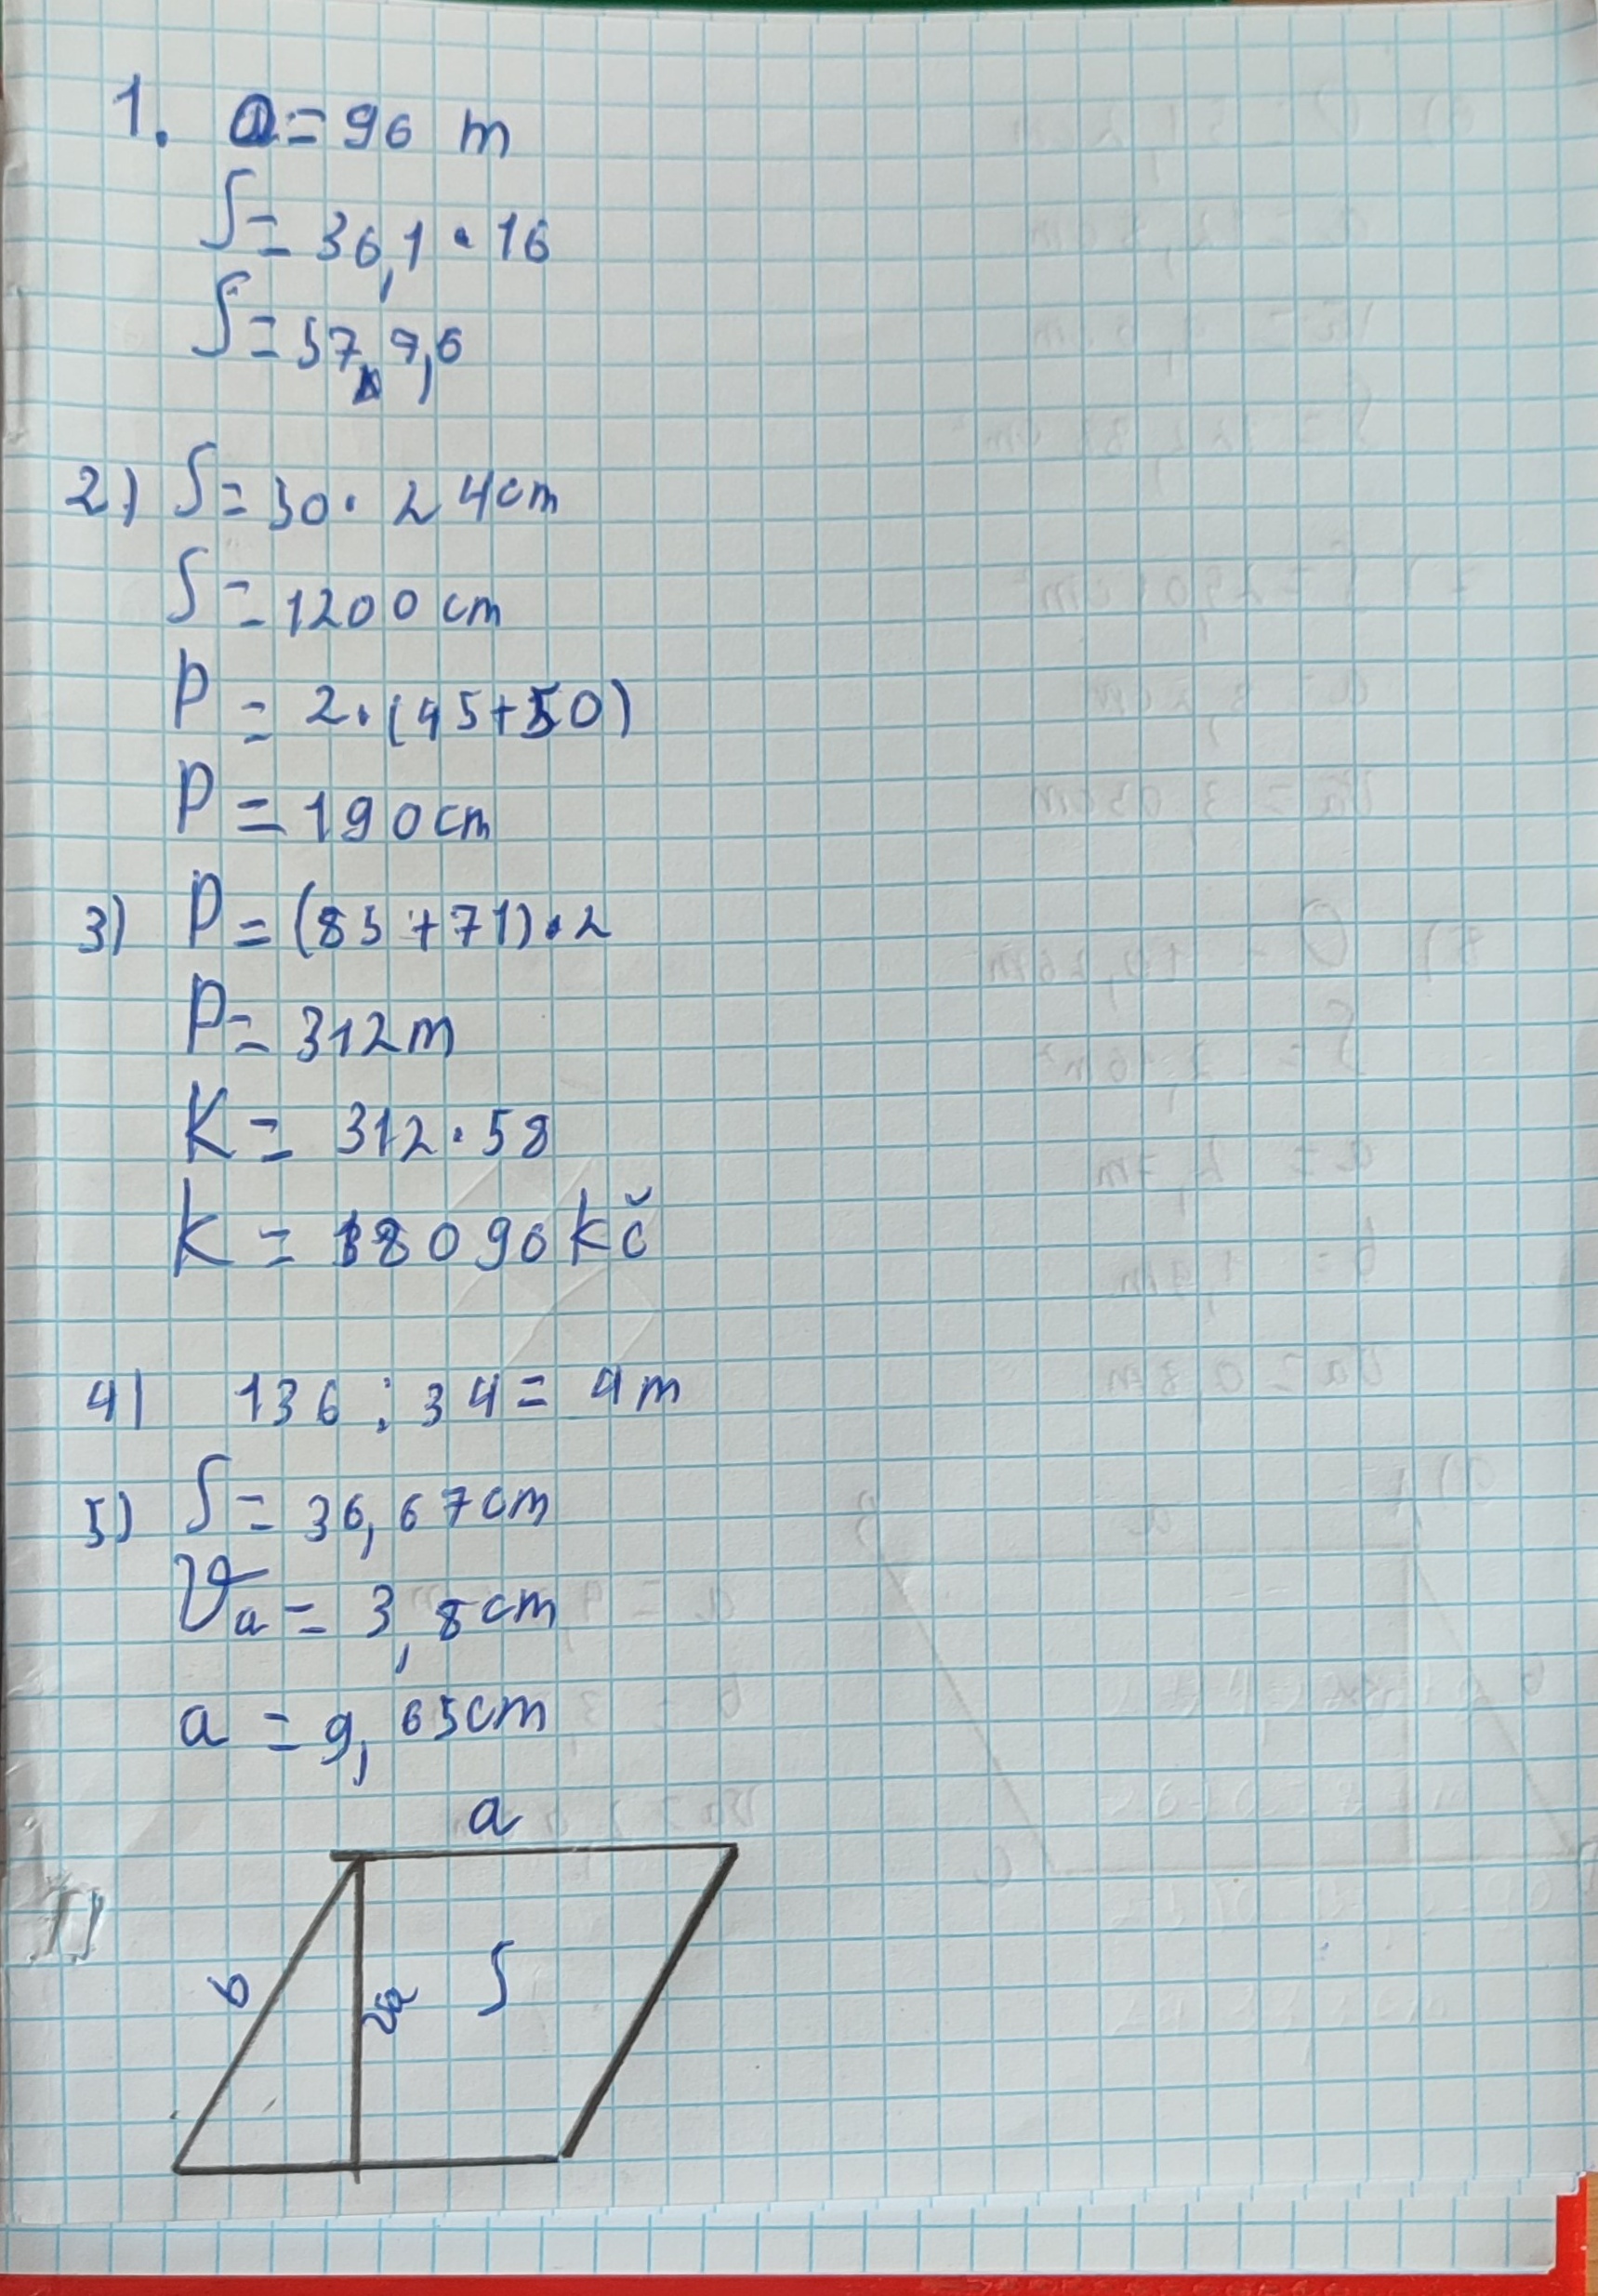 1. a = 96 m
S = 36,1 · 16
S = 577,6
2) S = 50 · 24cm
S = 1200 cm
P = 2·(45+50)
P = 190cm
3) P = (85+71)·2
P = 312m
K = 312·58
K = 18096kč
4) 136 : 34 = 4m
5) S = 36,67cm
Va = 3,8cm
a = 9,65cm
a
b va S